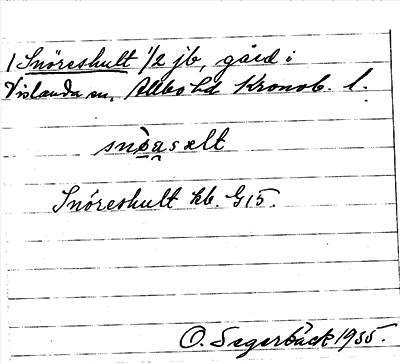 1 Snöreshult 1/2 jb, gård i
Vislanda sn, Allbo hd Kronob. l.
Snöreshult kb. G15.
O. Segerbäck 1935.